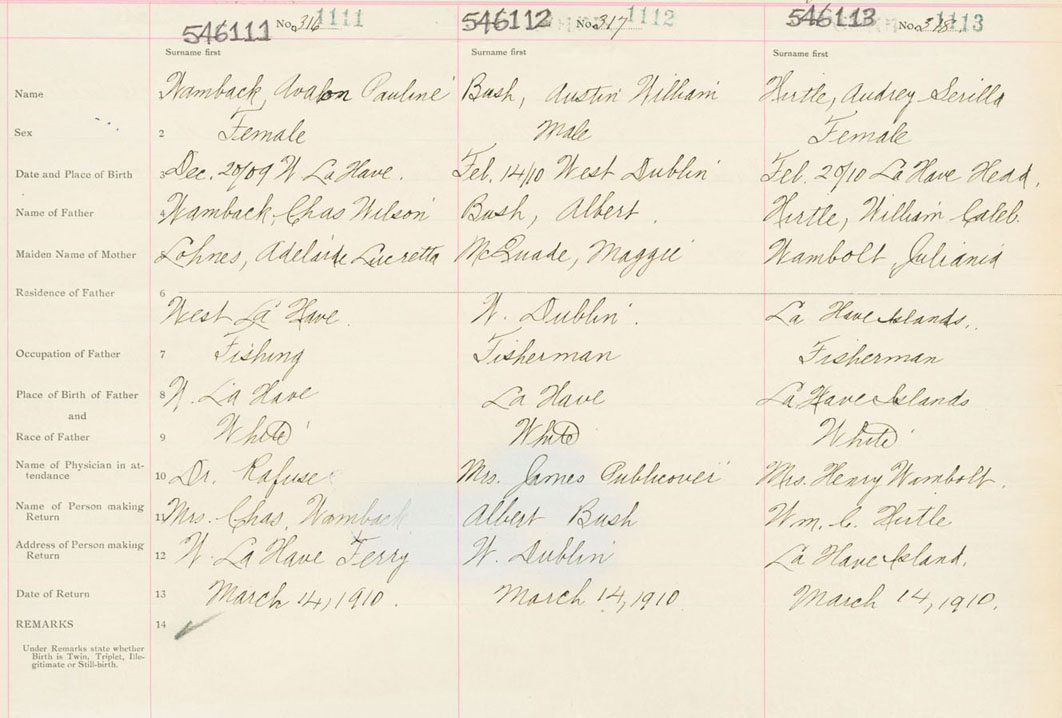 546111 No. 316 1111 546112 No. 317 1112 546113 No. 318 1113
Surname first Surname first Surname first
Name Wamback, Avalon Pauline Bush, Austin William Hirtle, Audrey Serilla
Sex 2 Female Male Female
Date and Place of Birth 3 Dec. 20/09 W La Have. Feb. 14/10 West Dublin Feb. 20/10 La Have Head.
Name of Father 4 Wamback, Chas Wilson Bush, Albert. Hirtle, William Caleb.
Maiden Name of Mother 5 Lohnes, Adelaide Lucretta McQuade, Maggie Wambolt, Juliania
Residence of Father 6
West La Have. W. Dublin. La Have Islands.
Occupation of Father 7 Fishing Fisherman Fisherman
Place of Birth of Father 8 W. La Have La Have La Have Islands
and
Race of Father 9 White White White
Name of Physician in at-
tendance 10 Dr. Rafuse Mrs. James Publicover Mrs. Henry Wambolt.
Name of Person making
Return 11 Mrs. Chas. Wamback Albert Bush Wm. C. Hirtle
Address of Person making
Return 12 W. La Have Ferry W. Dublin La Have Island.
Date of Return 13 March 14, 1910. March 14, 1910 March 14, 1910.
REMARKS 14
Under Remarks state whether
Birth is Twin, Triplet, Ille-
gitimate or Still-birth.